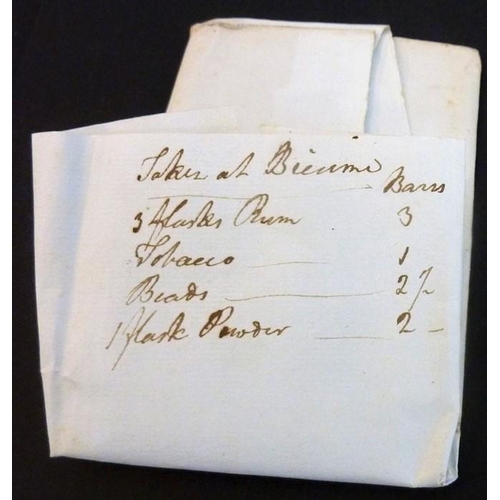 Taken at Bicume
Barrs
3 flasks Rum 3
Tobacco 1
Beads 2/
1 flask Powder 2